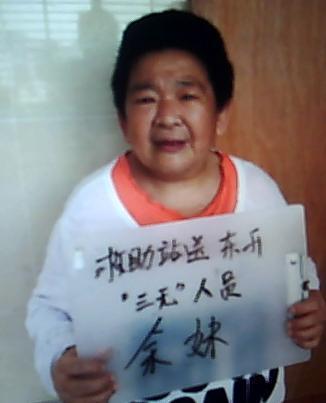 救助站送 东升
"三无"人员
余妹